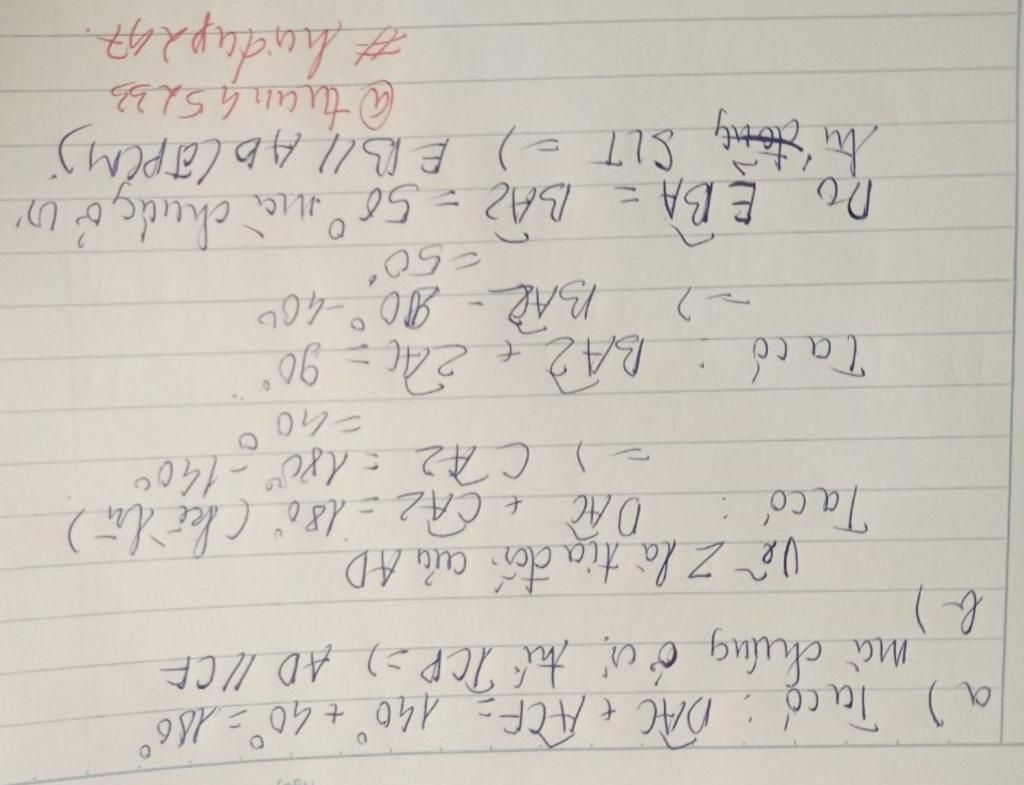 a) Ta có: DAC + ACF = 140° + 40° = 180°
mà chúng ở vị trí TCP => AD // CF
b)
Vẽ Z là tia đối của AD
Ta có: DAC + CAZ = 180° (kề bù)
=> CAZ = 180° - 140°
= 40°
Ta có: BAZ + ZAC = 90°
=> BAZ = 90° - 40°
= 50°
Do EBA = BAZ = 50° mà chúng ở vị
trí SLT => EB // AD (ĐPCM)
@tran45233
# hoidap247.